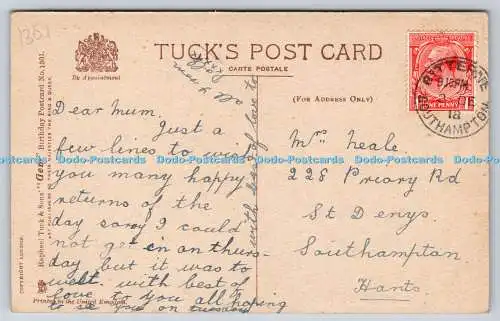 1301
TUCK'S POST CARD
CARTE POSTALE
By Appointment
(FOR ADDRESS ONLY)
Dear Mum.
Just a
few lines to wish
you many happy
returns of the
day sorry I could
not get in on thurs-
day but it was to
wet. with best of
love to you all hoping
to see you on tuesday
with best of love to
all
Mrs Neale
228 Priory Rd
St Denys
Southampton
Hants
BITTERNE
18
SOUTHAMPTON
ONE PENNY
Raphael Tuck & Sons' "Gem" Birthday Postcard No. 1301.
COPYRIGHT LONDON
Printed in the United Kingdom.
Dodo-Postcards Dodo-Postcards Dodo-Postcards Dodo-Postcards